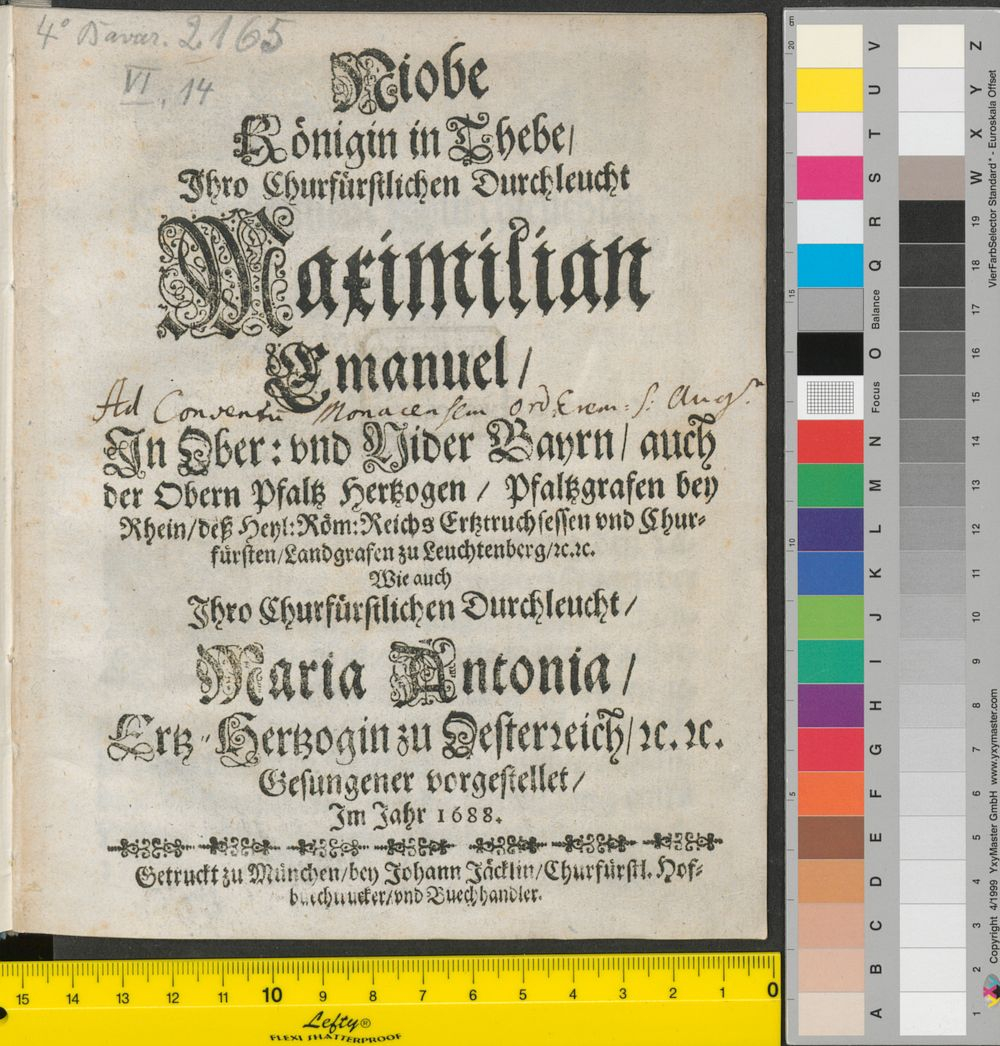 4° Bavar. 2165
VI, 14
Niobe
Königin in Thebe/
Ihro Churfürstlichen Durchleucht
Maximilian
Emanuel /
Ad Conventū Monacensem Ord. Erem: S: Aug.
In Ober: vnd Nider Bayrn/ auch
der Obern Pfaltz Hertzogen / Pfaltzgrafen bey
Rhein/deß Heyl:Röm:Reichs Ertztruchsessen vnd Chur-
fürsten/Landgrafen zu Leuchtenberg/ꝛc.ꝛc.
Wie auch
Ihro Churfürstlichen Durchleucht /
Maria Antonia /
Ertz-Hertzogin zu Oesterreich/ꝛc. ꝛc.
Gesungener vorgestellet /
Im Jahr 1688.
Getruckt zu München/bey Johann Jäcklin/Churfürstl. Hof-
buechtrucker/vnd Buechhandler.
15 14 13 12 11 10 9 8 7 6 5 4 3 2 1 0
Lefty®
FLEXI SHATTERPROOF
cm
20
15
10
5
V
U
T
S
R
Q
Balance
O
Focus
N
M
L
K
J
I
H
G
F
E
D
C
B
A
Z
Y
X
W
19
18
17
16
15
14
13
12
11
10
9
8
7
6
5
4
3
2
1
VierFarbSelector Standard* - Euroskala Offset
Copyright 4/1999 YxyMaster GmbH www.yxymaster.com